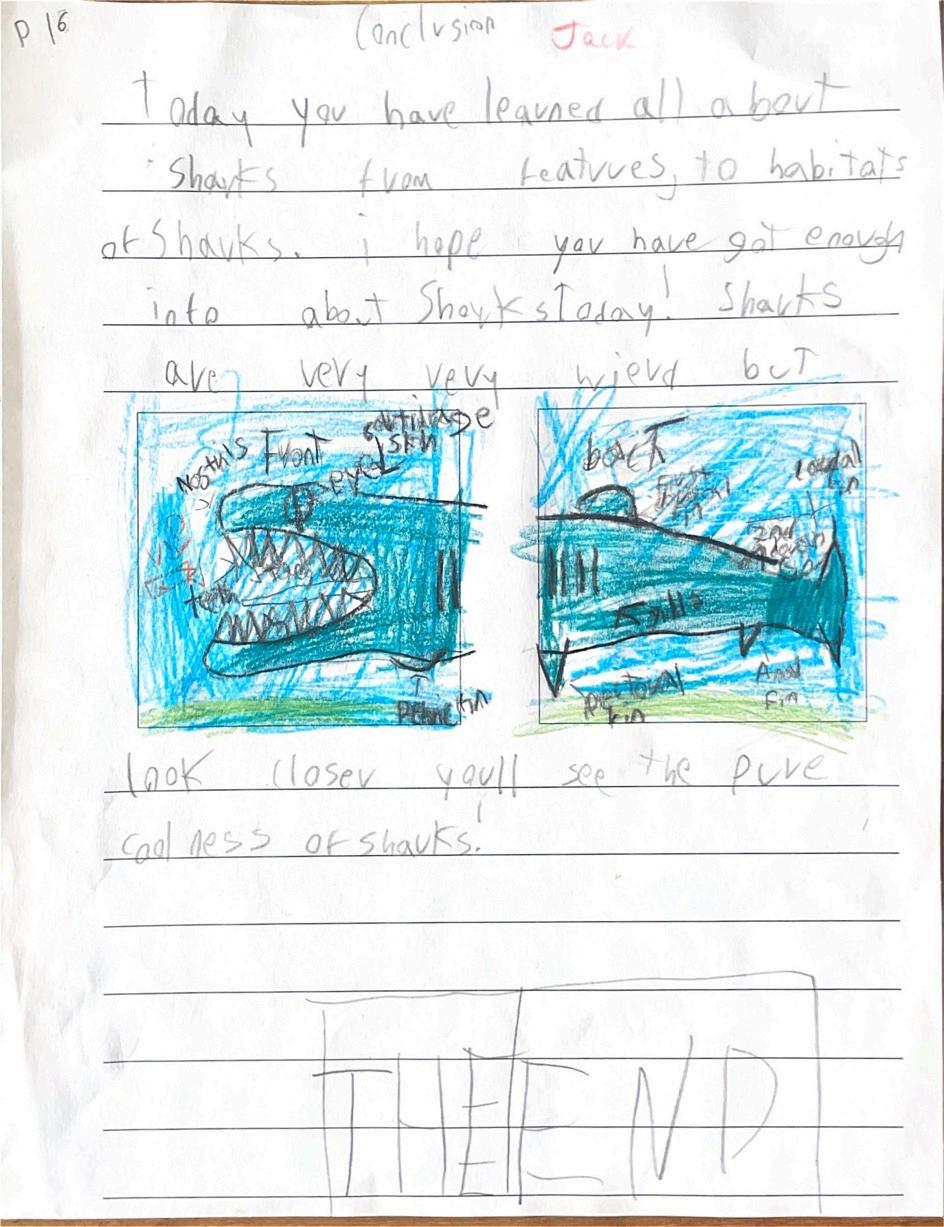 P 16
Conclusion Jack
Today you have learned all about
Sharks from features, to habitats
of Sharks. i hope you have got enough
info about Sharks Today! Sharks
are very very wierd but
cartilage
skin
Front
eye
teeth
back
2nd
gills
Pelvic fin
pectoral
fin
Anal
fin
look closer you'll see the pure
coolness of sharks.
THE END